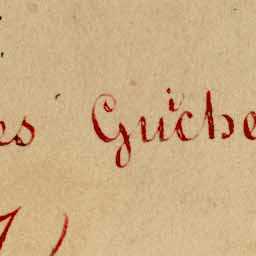 es Guiche